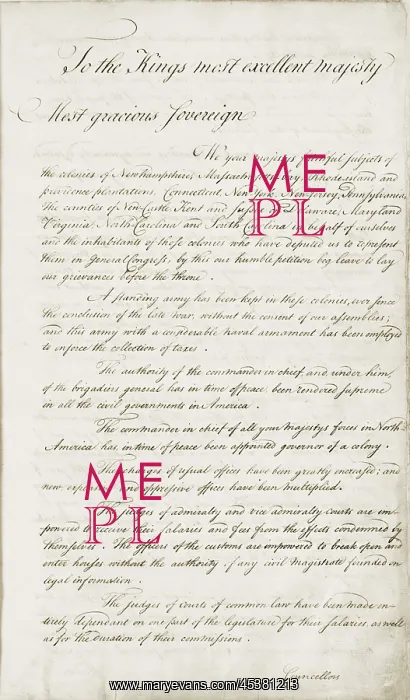 To the Kings most excellent majesty
Most gracious sovereign
We your majestys faithful subjects of
the colonies of Newhampshire, Massachusetts-bay, Rhode island and
providence plantations, Connecticut, New York, New Jersey, Pennsylvania,
the counties of New Castle Kent and Sussex on Delaware, Maryland
Virginia, North Carolina and South Carolina in behalf of ourselves
and the inhabitants of those colonies who have deputed us to represent
them in General Congress, by this our humble petition beg leave to lay
our grievances before the throne.
A standing army has been kept in these colonies, ever since
the conclusion of the late war, without the consent of our assemblies;
and this army with a considerable naval armament has been employed
to enforce the collection of taxes.
The authority of the commander in chief, and, under him,
of the brigadiers general has in time of peace been rendered supreme
in all the civil governments in America.
The commander in chief of all your majestys forces in North-
America has in time of peace been appointed governor of a colony.
The charges of usual offices have been greatly increased; and
new expensive and oppressive offices have been multiplied.
The judges of admiralty and vice admiralty courts are im-
powered to receive their salaries and fees from the effects condemned by
themselves. The officers of the customs are impowered to break open and
enter houses without the authority of any civil magistrate founded on
legal information.
The judges of courts of common law have been made en-
tirely dependant on one part of the legislature for their salaries, as well
as for the duration of their commissions.
Councellors
ME
PL
ME
PL
www.maryevans.com/45981213